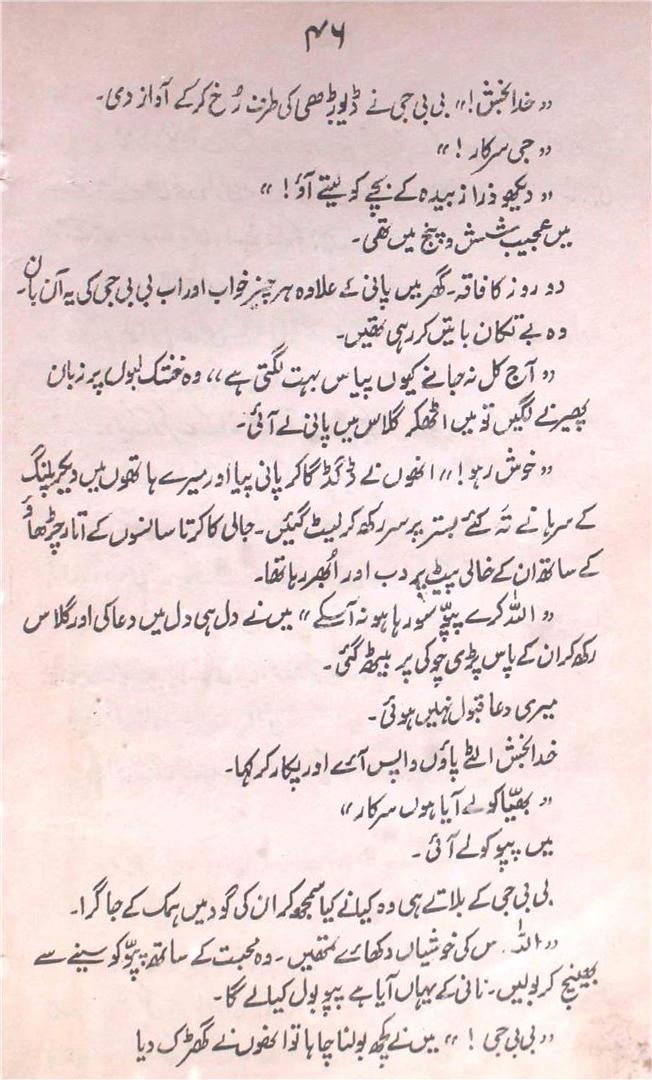 ۴۶
”خدابخش!“ بی بی جی نے ڈیوڑھی کی طرف رُخ کر کے آواز دی۔
”جی سرکار!“
”دیکھو ذرا زبیدہ کے بچے کو لیتے آؤ!“
میں عجیب شش و پنج میں تھی۔
دو روز کا فاقہ۔ گھر میں پانی کے علاوہ ہر چیز خواب اور اب بی بی جی کی یہ آن بان۔
وہ بے تکان باتیں کر رہی تھیں۔
”آج کل نہ جانے کیوں پیاس بہت لگتی ہے“ وہ خشک لبوں پر زبان
پھیرنے لگیں تو میں اٹھ کر گلاس میں پانی لے آئی۔
”خوش رہو!“ انھوں نے ڈگڈگا کر پانی پیا اور میرے ہاتھوں میں دیکر پلنگ
کے سرہانے تہَ کئے بستر پر سر رکھ کر لیٹ گئیں۔ جالی کا کرتا سانسوں کے اتار چڑھاؤ
کے ساتھ ان کے خالی پیٹ پر دب اور اُبھر رہا تھا۔
”اللہ کرے پپّو سو رہا ہو نہ آسکے“ میں نے دل ہی دل میں دعا کی اور گلاس
رکھ کر ان کے پاس پڑی چوکی پر بیٹھ گئی۔
میری دعا قبول نہیں ہوئی۔
خدابخش الٹے پاؤں واپس آئے اور پکار کر کہا۔
”بھیّا کو لے آیا ہوں سرکار“
میں پپو کو لے آئی۔
بی بی جی کے بلاتے ہی وہ کیا نے کیا سمجھ کر ان کی گود میں ہمک کے جا گرا۔
”اللہ س کی خوشیاں دکھائے تمھیں۔ وہ محبت کے ساتھ پپّو کو سینے سے
بھینچ کر بولیں۔ نانی کے یہاں آیا ہے پپو بول کیا لے گا۔
”بی بی جی!“ میں نے کچھ بولنا چاہا تو انھوں نے گھڑک دیا